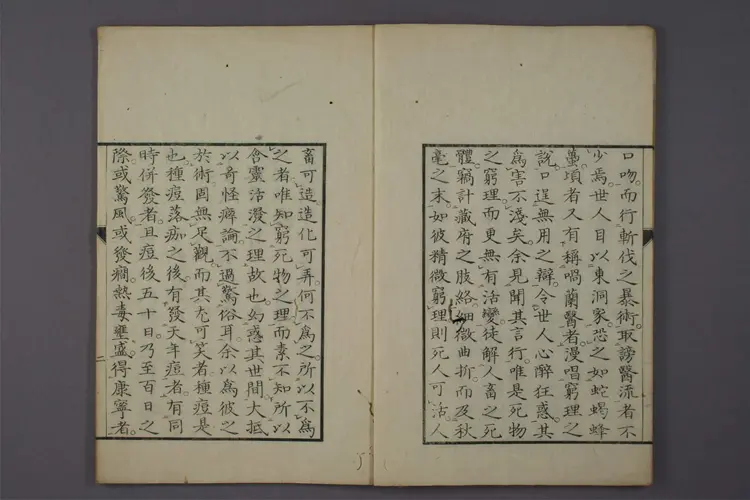 口吻。而行斬伐之暴術。取謗醫流者不
少焉。世人目以東洞家。恐之如蛇蝎蜂
蠆。頃者又有稱喎蘭醫者。漫唱窮理之
說。口逞無用之辯。令世人心醉狂惑。其
為害不淺矣。余見聞其言行。唯是死物
之窮理。而更無有活變。徒解人畜之死
體。竊計藏府之肢絡。細微曲折。而及秋
毫之末。如彼精微窮理。則死人可活。人
畜可造。造化可弄。何不為之。所以不為
之者。唯知窮死物之理。而素不知所以
含靈活潑之理故也。幻惑其世間。大抵
以奇怪癖論。不過驚俗耳。余以為彼之
於術。固無足觀。而其尤可笑者。種痘是
也。種痘落痂之後。有發天年痘者。有同
時併發者。且痘後五十日。乃至百日之
際。或驚風。或發癇。熱毒壅盛。得康寧者。
二